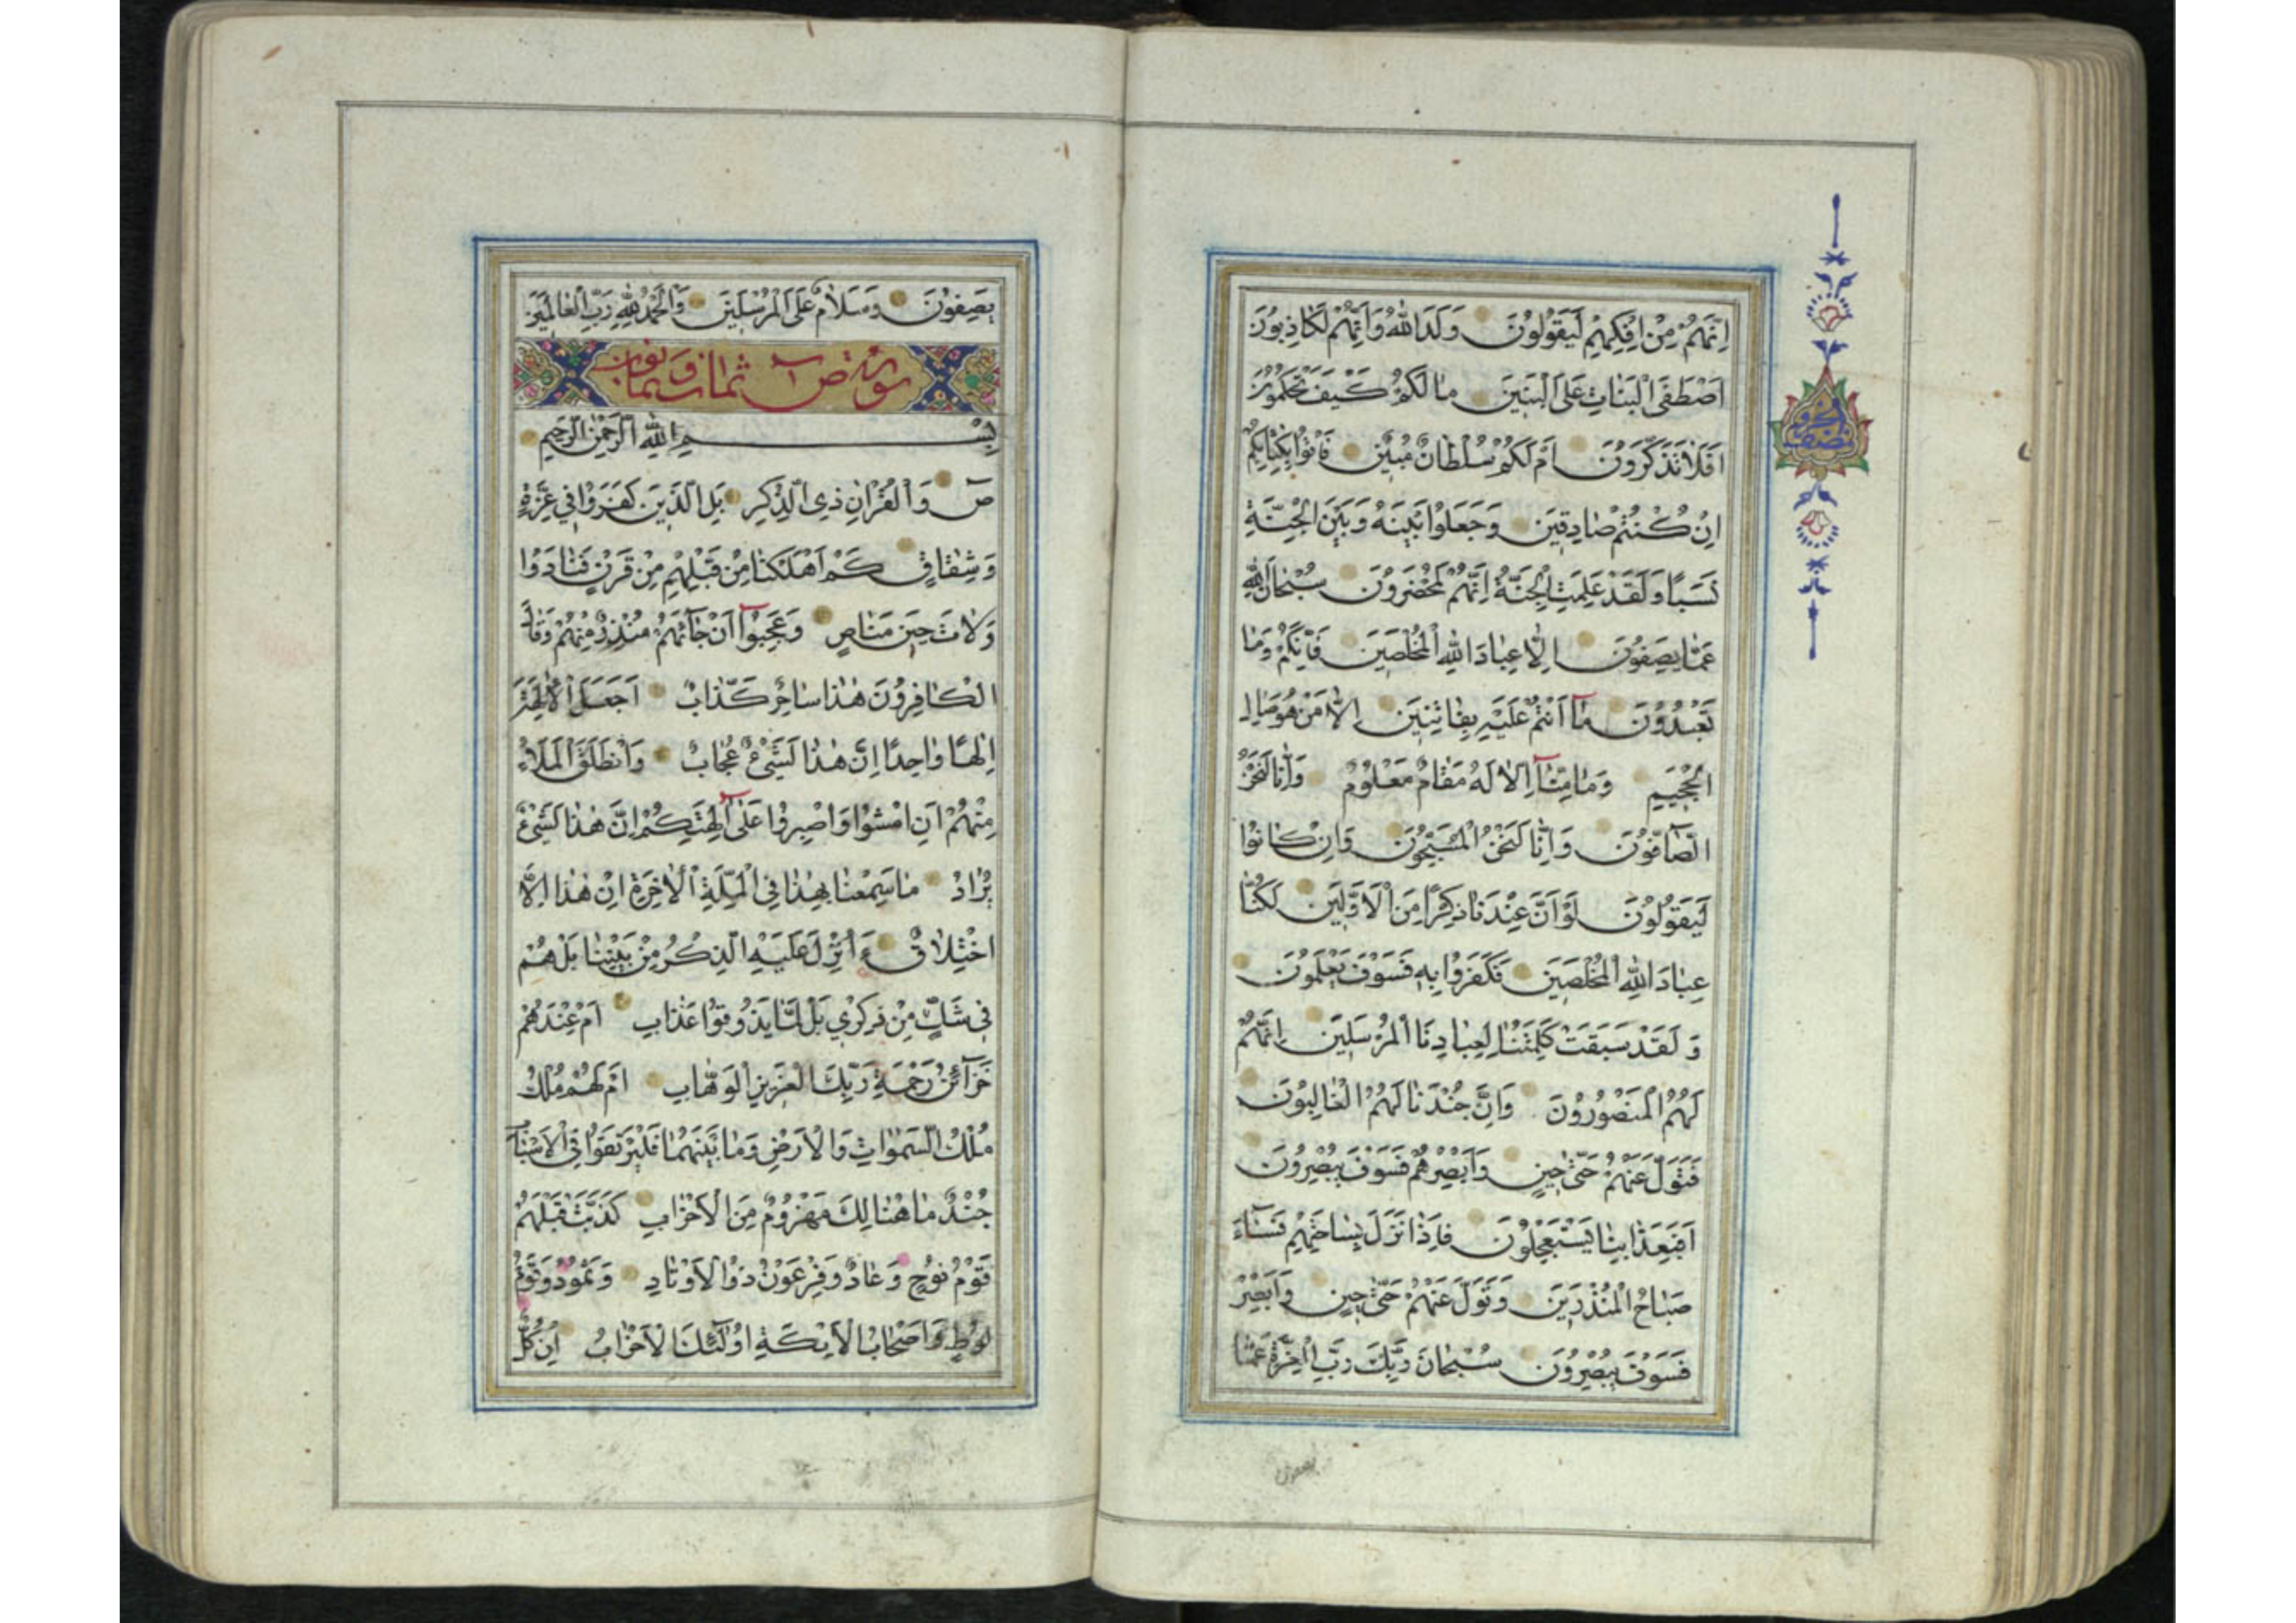 اِنَّهُمْ مِنْ اِفْكِهِمْ لَيَقُولُونَ وَلَدَ اللّٰهُ وَاِنَّهُمْ لَكَاذِبُونَ
اَصْطَفَى الْبَنَاتِ عَلَى الْبَنِينَ مَا لَكُمْ كَيْفَ تَحْكُمُونَ
اَفَلَا تَذَكَّرُونَ اَمْ لَكُمْ سُلْطَانٌ مُبِينٌ فَأْتُوا بِكِتَابِكُمْ
اِنْ كُنْتُمْ صَادِقِينَ وَجَعَلُوا بَيْنَهُ وَبَيْنَ الْجِنَّةِ
نَسَبًا وَلَقَدْ عَلِمَتِ الْجِنَّةُ اِنَّهُمْ لَمُحْضَرُونَ سُبْحَانَ اللّٰهِ
عَمَّا يَصِفُونَ اِلَّا عِبَادَ اللّٰهِ الْمُخْلَصِينَ فَاِنَّكُمْ وَمَا
تَعْبُدُونَ مَا اَنْتُمْ عَلَيْهِ بِفَاتِنِينَ اِلَّا مَنْ هُوَ صَالِ
الْجَحِيمِ وَمَا مِنَّا اِلَّا لَهُ مَقَامٌ مَعْلُومٌ وَاِنَّا لَنَحْنُ
الصَّافُّونَ وَاِنَّا لَنَحْنُ الْمُسَبِّحُونَ وَاِنْ كَانُوا
لَيَقُولُونَ لَوْ اَنَّ عِنْدَنَا ذِكْرًا مِنَ الْاَوَّلِينَ لَكُنَّا
عِبَادَ اللّٰهِ الْمُخْلَصِينَ فَكَفَرُوا بِهِ فَسَوْفَ يَعْلَمُونَ
وَلَقَدْ سَبَقَتْ كَلِمَتُنَا لِعِبَادِنَا الْمُرْسَلِينَ اِنَّهُمْ
لَهُمُ الْمَنْصُورُونَ وَاِنَّ جُنْدَنَا لَهُمُ الْغَالِبُونَ
فَتَوَلَّ عَنْهُمْ حَتّٰى حِينٍ وَاَبْصِرْهُمْ فَسَوْفَ يُبْصِرُونَ
اَفَبِعَذَابِنَا يَسْتَعْجِلُونَ فَاِذَا نَزَلَ بِسَاحَتِهِمْ فَسَاءَ
صَبَاحُ الْمُنْذَرِينَ وَتَوَلَّ عَنْهُمْ حَتّٰى حِينٍ وَاَبْصِرْ
فَسَوْفَ يُبْصِرُونَ سُبْحَانَ رَبِّكَ رَبِّ الْعِزَّةِ عَمَّا
يصفون
نصف الحزب
يَصِفُونَ وَسَلَامٌ عَلَى الْمُرْسَلِينَ وَالْحَمْدُ لِلّٰهِ رَبِّ الْعَالَمِينَ
سورة ص ثمان وثمانون
بِسْمِ اللّٰهِ الرَّحْمٰنِ الرَّحِيمِ
صٓ وَالْقُرْاٰنِ ذِي الذِّكْرِ بَلِ الَّذِينَ كَفَرُوا فِي عِزَّةٍ
وَشِقَاقٍ كَمْ اَهْلَكْنَا مِنْ قَبْلِهِمْ مِنْ قَرْنٍ فَنَادَوْا
وَلَاتَ حِينَ مَنَاصٍ وَعَجِبُوا اَنْ جَاۤءَهُمْ مُنْذِرٌ مِنْهُمْ وَقَالَ
الْكَافِرُونَ هٰذَا سَاحِرٌ كَذَّابٌ اَجَعَلَ الْاٰلِهَةَ
اِلٰهًا وَاحِدًا اِنَّ هٰذَا لَشَيْءٌ عُجَابٌ وَانْطَلَقَ الْمَلَأُ
مِنْهُمْ اَنِ امْشُوا وَاصْبِرُوا عَلٰى اٰلِهَتِكُمْ اِنَّ هٰذَا لَشَيْءٌ
يُرَادُ مَا سَمِعْنَا بِهٰذَا فِي الْمِلَّةِ الْاٰخِرَةِ اِنْ هٰذَا اِلَّا
اخْتِلَاقٌ ءَاُنْزِلَ عَلَيْهِ الذِّكْرُ مِنْ بَيْنِنَا بَلْ هُمْ
فِي شَكٍّ مِنْ ذِكْرِي بَلْ لَمَّا يَذُوقُوا عَذَابِ اَمْ عِنْدَهُمْ
خَزَاۤئِنُ رَحْمَةِ رَبِّكَ الْعَزِيزِ الْوَهَّابِ اَمْ لَهُمْ مُلْكُ
مُلْكُ السَّمٰوَاتِ وَالْاَرْضِ وَمَا بَيْنَهُمَا فَلْيَرْتَقُوا فِي الْاَسْبَابِ
جُنْدٌ مَا هُنَالِكَ مَهْزُومٌ مِنَ الْاَحْزَابِ كَذَّبَتْ قَبْلَهُمْ
قَوْمُ نُوحٍ وَعَادٌ وَفِرْعَوْنُ ذُو الْاَوْتَادِ وَثَمُودُ وَقَوْمُ
لُوطٍ وَاَصْحَابُ الْاَيْكَةِ اُولٰۤئِكَ الْاَحْزَابُ اِنْ كُلٌّ